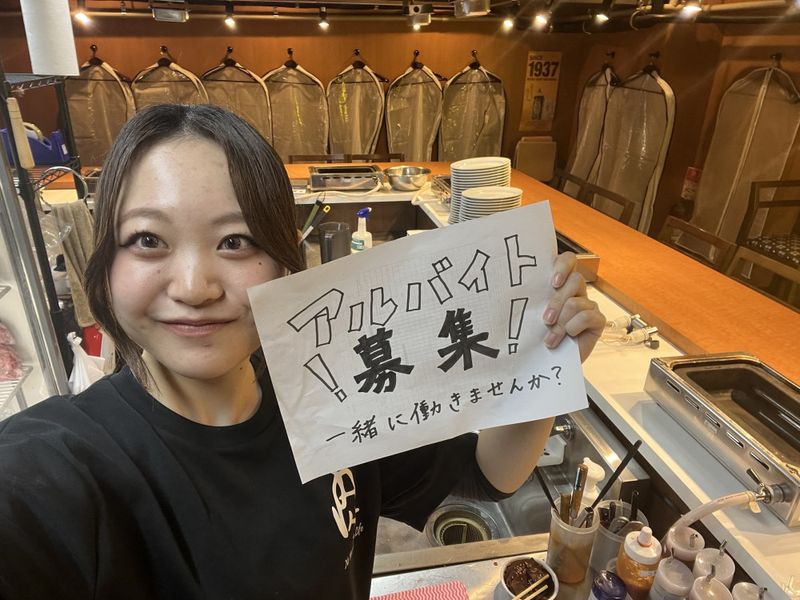 SINCE
1937
アルバイト
!募集!
一緒に働きませんか?